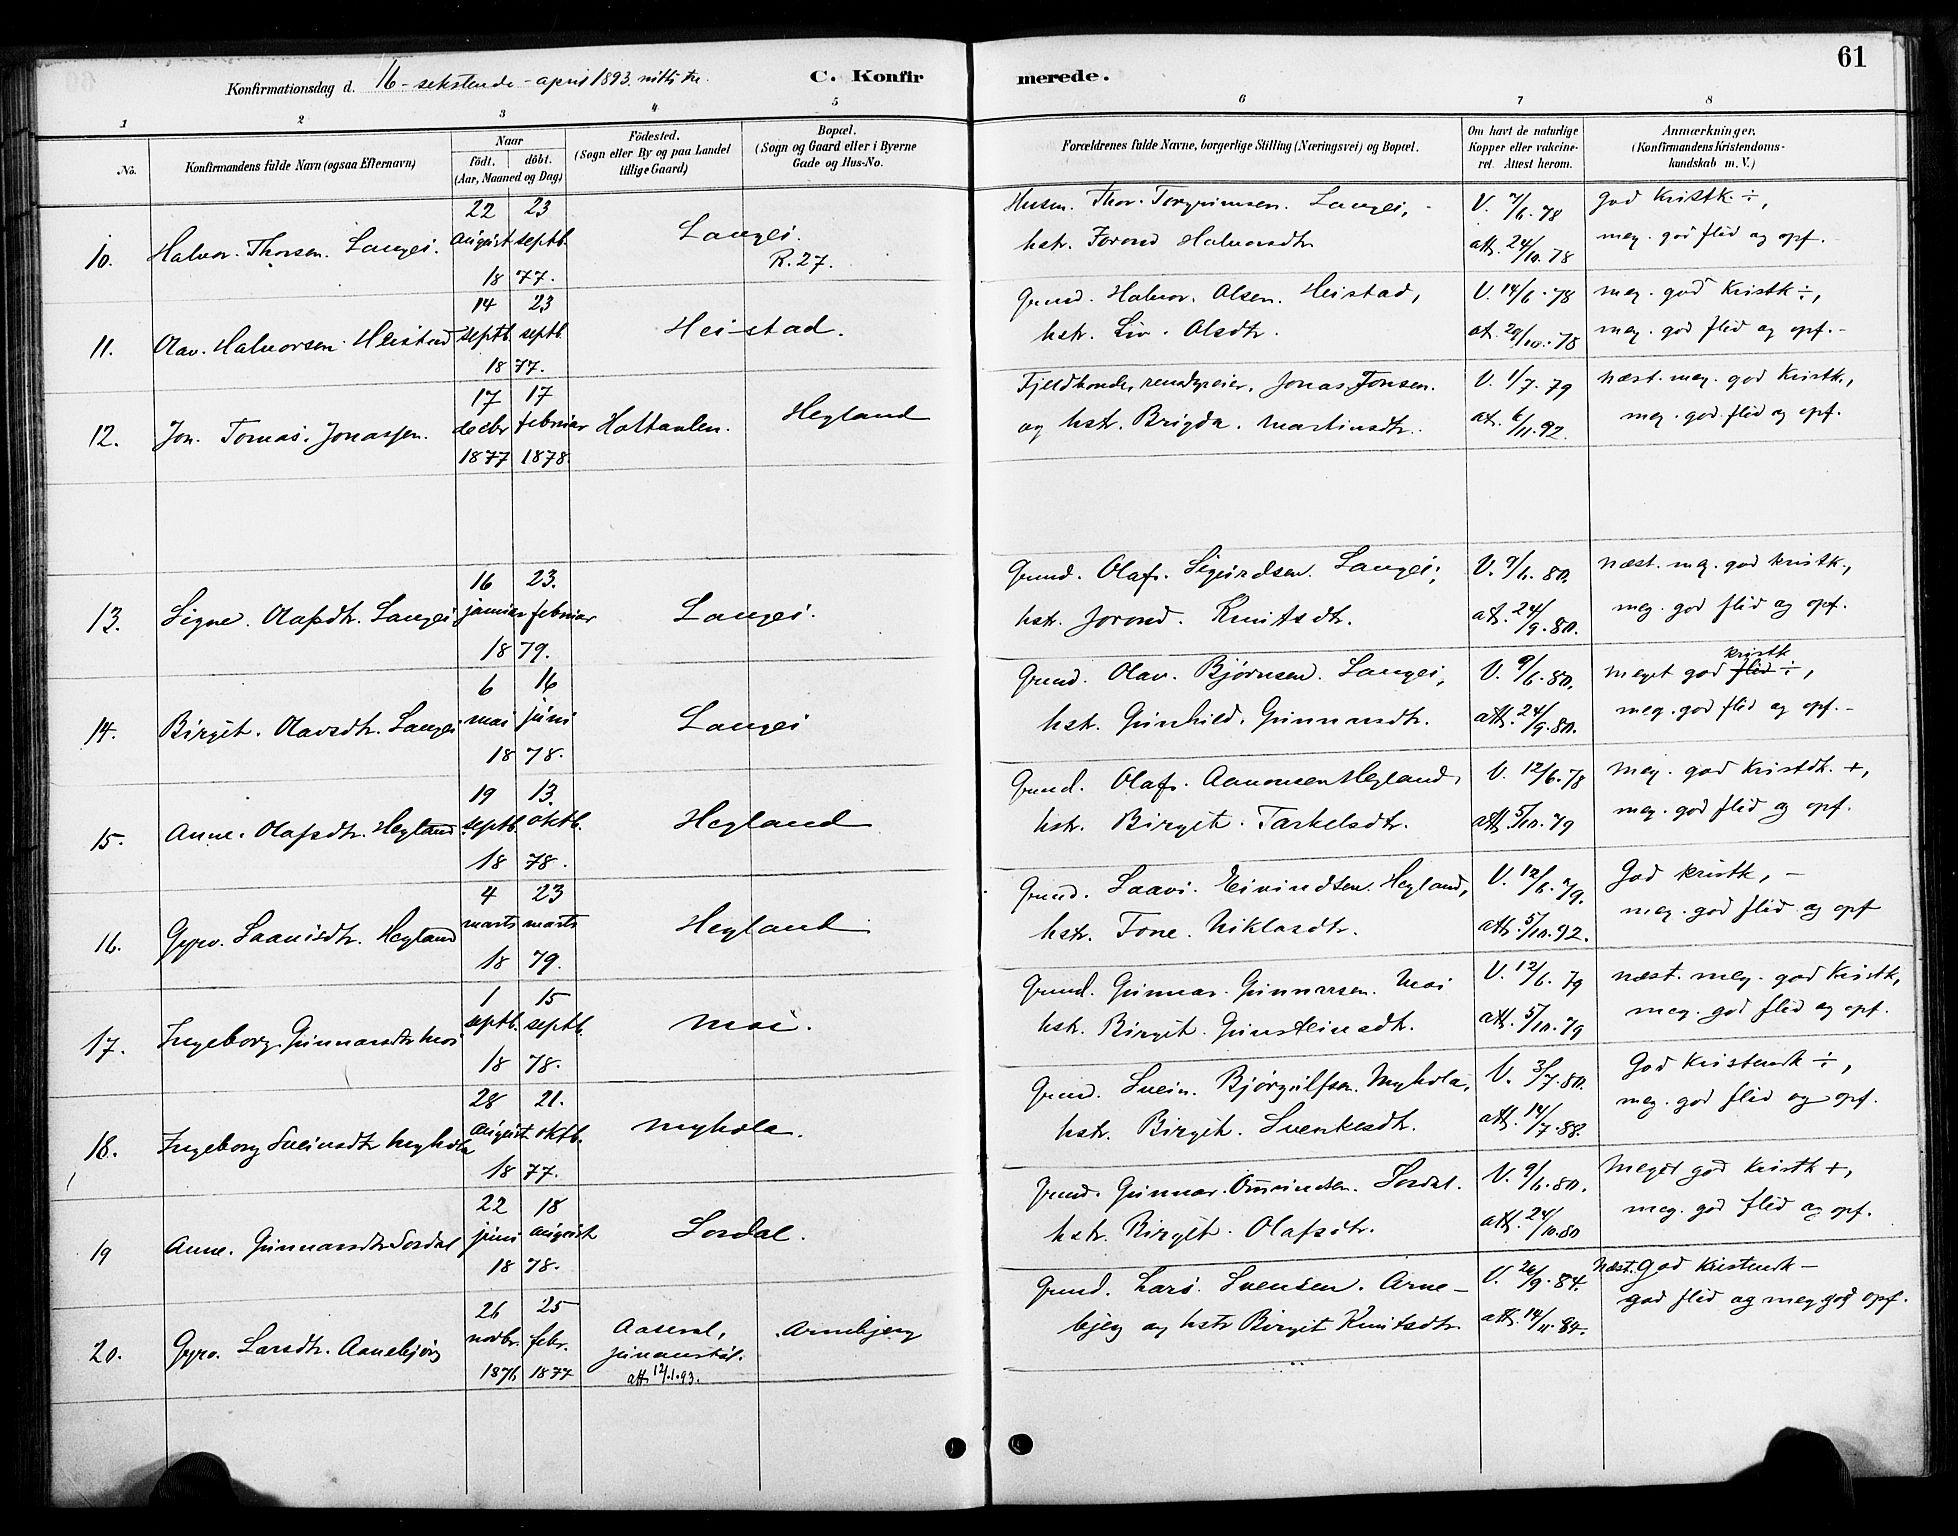 61
Konfirmationsdag d. 16 - sekstende - april 1893. nitti tre. C. Konfirmerede.
1 2 3 4 5 6 7 8
No. Konfirmandens fulde Navn (ogsaa Efternavn) Naar født. døbt. (Aar, Maaned og Dag) Fødested. (Sogn eller By og paa Landet tillige Gaard) Bopæl. (Sogn og Gaard eller i Byerne Gade og Hus-No. Forældrenes fulde Navne, borgerlige Stilling (Næringsvei) og Bopæl. Om havt de naturlige Kopper eller vakcineret. Attest herom. Anmærkninger. (Konfirmandens Kristendomskundskab m. V.)
22 23 Husm. Thor. Torgrimsen. Langei, V. 7/6 78 god Kristk. ÷,
10. Halvor. Thorsen. Langei. august septb. Langei. hstr. Jorond Halvorsdtr att. 24/10.78 meg. god flid og opf. -
18 77. R. 27.
14 23 Grund. Halvor. Olsen. Heistad, V. 14/6.78 meg. god Kristk ÷,
11. Olav. Halvorsen. Heistad septb. septb. Heistad. hstr. Liv. Olsdtr. at. 29/10.78 meg. god flid og opf. -
18 77.
17 17 Fjeldbonde, Jonas. Jonsen. V. 1/7.79 næst. meg. god Kristk.,
12. Jon. Tomas. Jonassen. decbr februar Holtaalen. Hegland og hstr. Brigda. Martinsdtr. at. 6/11.92. meg. god flid og opf.
1877 1878.
16 23. Grund. Olaf. Sigurdsen. Langei, V. 9/6.80. næst. meg. god kristk.,
13. Signe. Olafsdtr. Langei januar februar Langei. hstr. Jorond. Knutsdtr. at. 24/9.80. meg. god flid og opf.
18 79.
6 16 Grund. Olav. Bjørnsen. Langei, V. 9/6.80. meget god flid kristk ÷,
14. Birgit. Olavsdtr. Langei mai juni Langei hstr. Gunhild. Gunnarsdtr. att. 24/9.80. meg. god flid og opf. -
18 78.
19 13. Grund. Olaf. Aanonsen Hegland, V. 12/6.78 meg. god Kristdk. +,
15. Anne. Olafsdtr. Hegland septb. oktb. Hegland hstr. Birgit. Tarkelsdtr. att. 5/10.79 meg. god flid og opf.
18 78.
4 23 Grund. Laavi. Eivindsen. Hegland, V. 12/6.79. God kristk, -
16. Gyro. Laavisdtr. Hegland marts marts Hegland hstr. Tone. Niklasdtr. att. 5/10.92. meg. god flid og opf
18 79.
1 15 Grund. Gunnar. Gunnarsen. Moi V. 12/6.79 næst. meg. god Kristk,
17. Ingeborg. Gunnarsdtr Moi septb. septb. Moi. hstr. Birgit. Gunsteinsdtr. att. 5/10.79 meg. god flid og opf.
18 78.
28 21. Grund. Svein. Bjørgulfsen. Myhola, V. 3/7.80. God kristendk ÷,
18. Ingeborg Sveinsdtr Myhola august oktb. Myhola. hstr. Birgit. Svenkesdtr. att. 14/7.88. meg. god flid og opf.
18 77.
22 18 Grund. Gunnar. Omundsen. Sordal. V. 9/6.80. Meget god kristk +,
19 Anne. Gunnarsdtr Sordal juni august Sordal. hstr. Birgit. Olafsdtr. att. 24/10.80 meg. god flid og opf.
18 78.
26 25 Grund. Lars. Svensen. Arne- V. 26/9.84. Næst. God kristendk -
20. Gyro. Larsdtr. Aanebjørg novbr. febr. Aaseral, Arnebjerg bjerg og hstr Birgit Knutsdtr att. 14/11.84. god flid og meg god opf.
1876 1877 att 12/1.93.